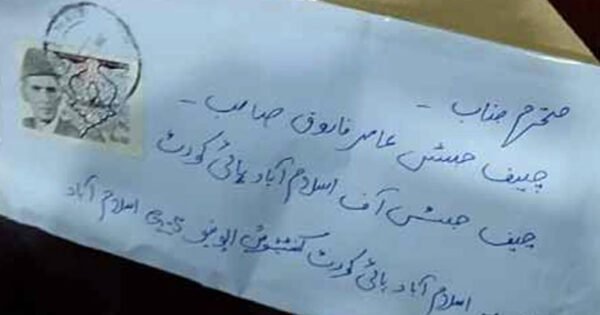 محترم جناب -
چیف جسٹس عامر فاروق صاحب -
چیف جسٹس آف اسلام آباد ہائی کورٹ
اسلام آباد ہائی کورٹ کنسٹیٹیوشن ایونیو اسلام آباد